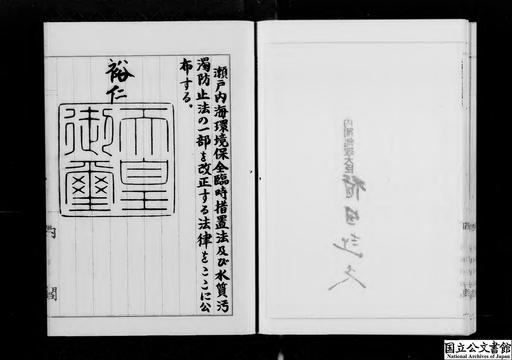 瀬戸内海環境保全臨時措置法及び水質汚
濁防止法の一部を改正する法律をここに公
布する。
裕仁
天皇
御璽
内閣
国立公文書館
National Archives of Japan